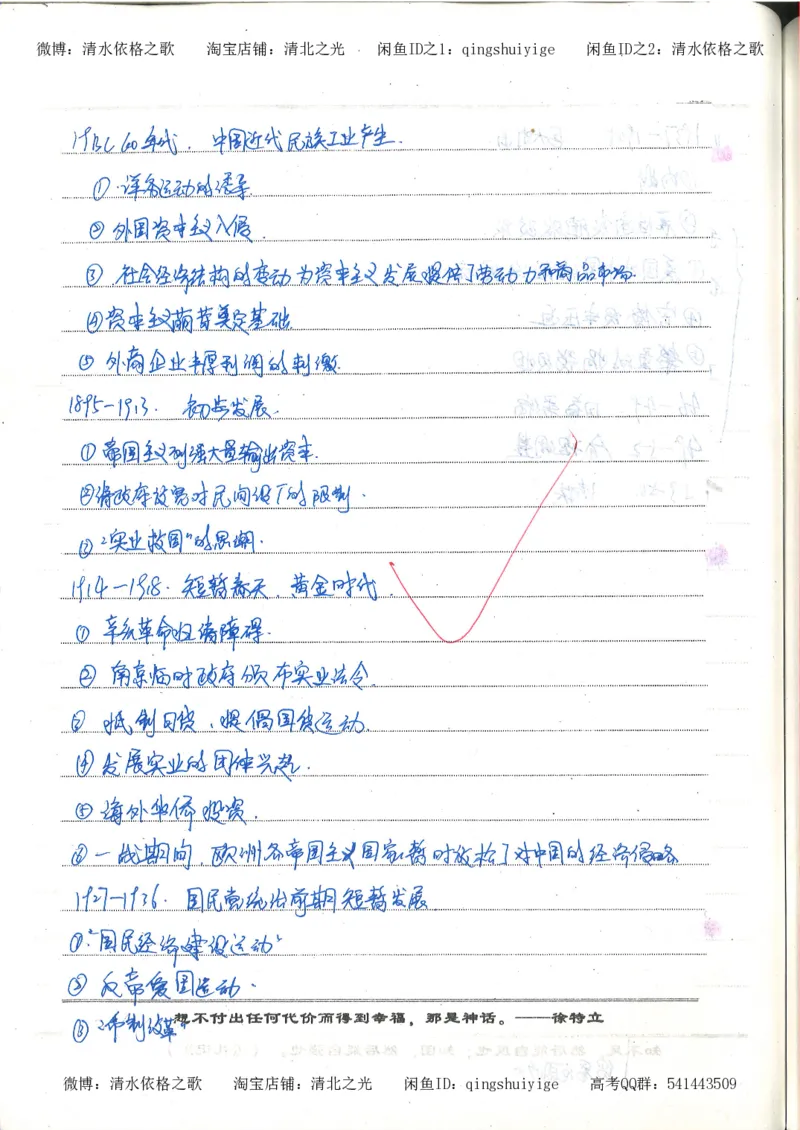 微博：清水依格之歌 淘宝店铺：清北之光 闲鱼ID之1：qingshuiyige 闲鱼ID之2：清水依格之歌
19BC 60年代. 中国近代民族工业产生.
①.洋务运动的诱导
② 外国资本主义入侵.
③ 社会经济结构的变动为资本主义发展提供了劳动力和商品市场.
④资本主义萌芽奠定基础
⑤ 外商企业丰厚利润的刺激.
1895-1913. 初步发展.
①帝国主义列强大量输出资本.
②清政府放宽对民间设厂的限制.
③“实业救国”的思潮.
1914-1918. 短暂春天. 黄金时代.
① 辛亥革命扫清障碍.
② 南京临时政府颁布实业法令.
③ 抵制日货、提倡国货运动.
④发展实业的团体兴起.
⑤海外华侨投资.
⑥一战期间，欧洲各帝国主义国家暂时放松了对中国的经济侵略
1927-1936. 国民党统治前期短暂发展.
①.“国民经济建设运动”
② 反帝爱国运动.
③“币制改革”
想不付出任何代价而得到幸福，那是神话。——徐特立
微博：清水依格之歌 淘宝店铺：清北之光 闲鱼ID：qingshuiyige 高考QQ群：541443509